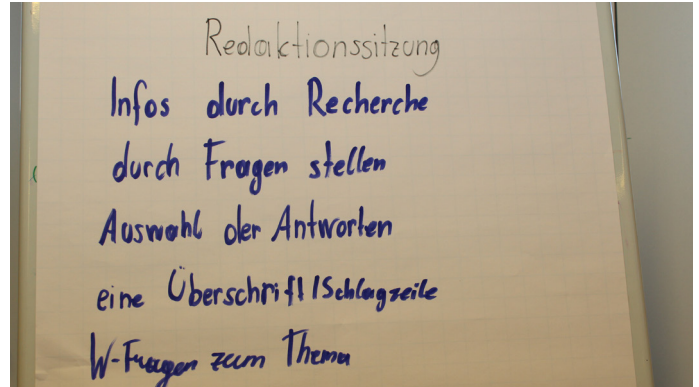 Redaktionssitzung
Infos durch Recherche
durch Fragen stellen
Auswahl der Antworten
eine Überschrift/Schlagzeile
W-Fragen zum Thema